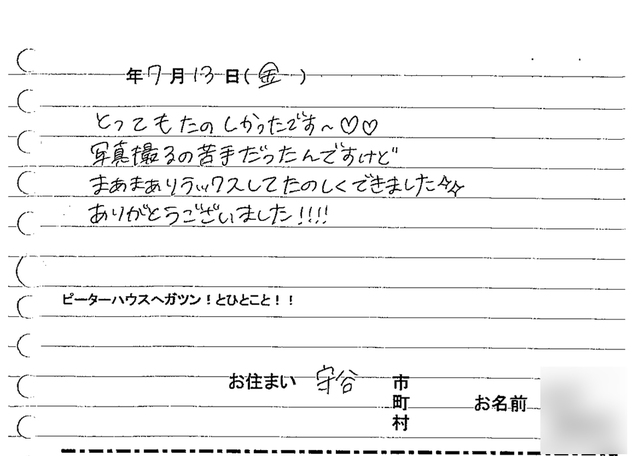 年7月13日(金)
とってもたのしかったです〜♡♡
写真撮るの苦手だったんですけど
まあまありラックスしてたのしくできました☆☆
ありがとうございました!!!!
ピーターハウスへガツン!とひとこと!!
お住まい 守谷 市 お名前
町
村